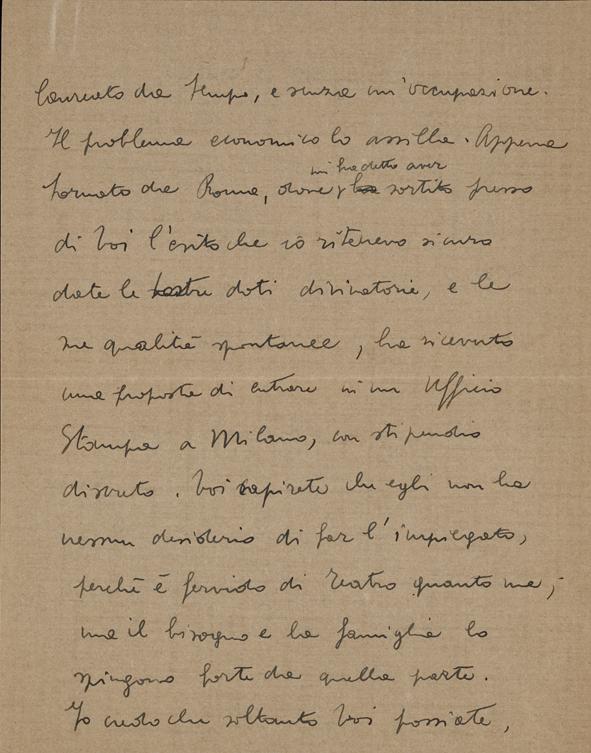 laureato da tempo, e senza un'occupazione.
Il problema economico lo assilla. Appena
mi ha detto aver
tornato da Roma, dove ha sortito presso
di Voi l'esito che io ritenevo sicuro
date le vostre doti divinatorie, e le
sue qualità spontanee, ha ricevuto
una proposta di entrare in un Ufficio
Stampa a Milano, con stipendio
discreto. Voi capirete che egli non ha
nessun desiderio di far l'impiegato,
perchè è fervido di Teatro quanto me,
ma il bisogno e la famiglia lo
spingono forte da quella parte.
Io credo che soltanto Voi possiate,